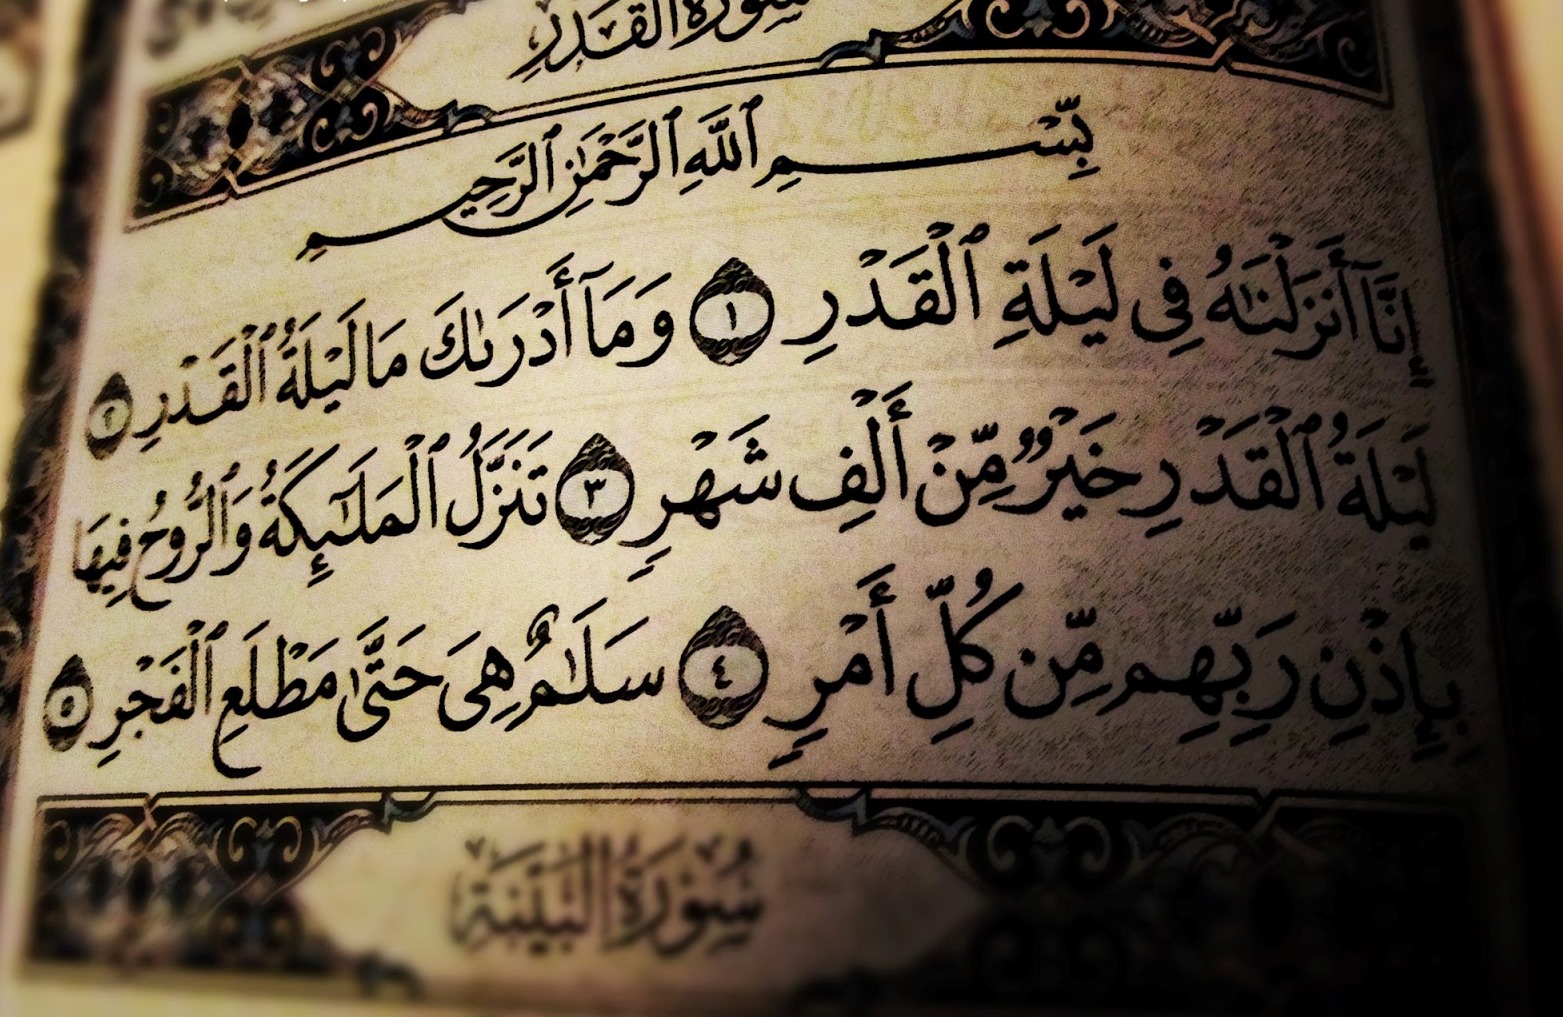 سُورَةُ القَدْرِ
بِسْمِ ٱللَّهِ ٱلرَّحْمَٰنِ ٱلرَّحِيمِ
إِنَّآ أَنزَلْنَٰهُ فِى لَيْلَةِ ٱلْقَدْرِ ١ وَمَآ أَدْرَىٰكَ مَا لَيْلَةُ ٱلْقَدْرِ ٢
لَيْلَةُ ٱلْقَدْرِ خَيْرٌ مِّنْ أَلْفِ شَهْرٍ ٣ تَنَزَّلُ ٱلْمَلَٰٓئِكَةُ وَٱلرُّوحُ فِيهَا
بِإِذْنِ رَبِّهِم مِّن كُلِّ أَمْرٍ ٤ سَلَٰمٌ هِىَ حَتَّىٰ مَطْلَعِ ٱلْفَجْرِ ٥
سُورَةُ البَيِّنَةِ